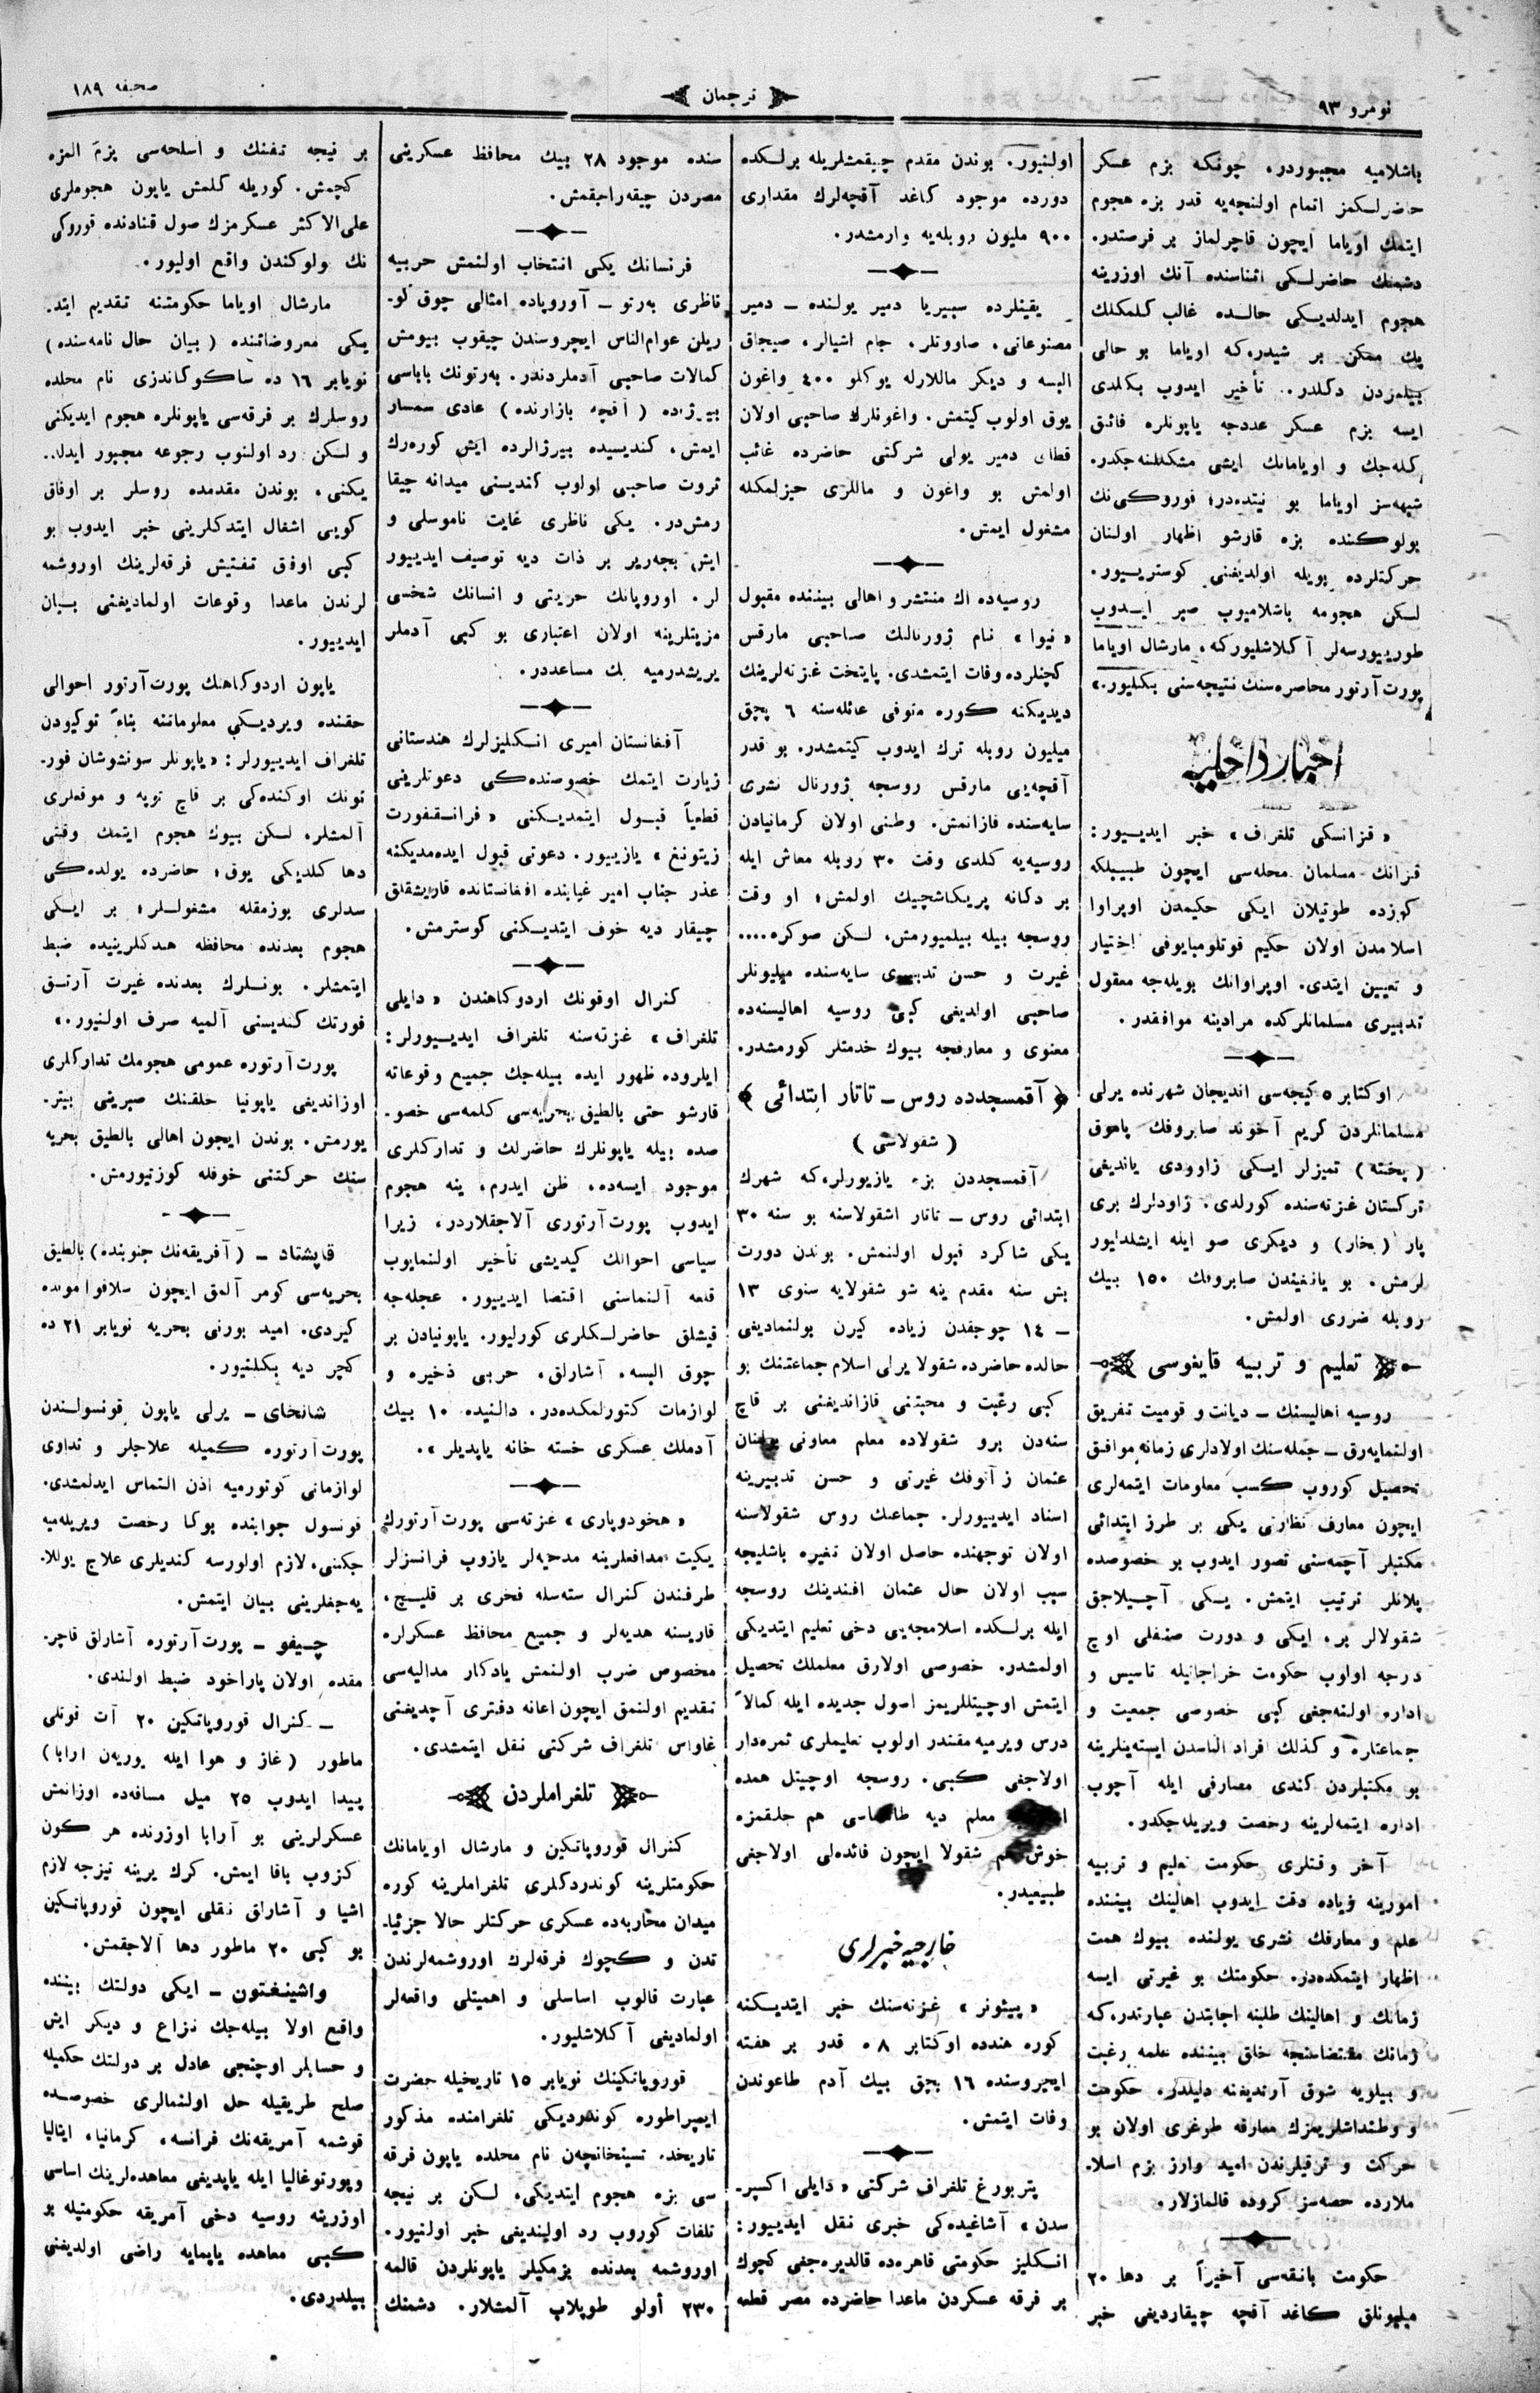 نومرو ۹۳
ترجمان
صحیفه ۱۸۹
باشلامیه مجبوردر. چونکه بزم عسکر
حاضرلکمز اتمام اولنجه‌یه قدر بزه هجوم
ایتمك اویاما ایچون قاچرلماز بر فرصتدر.
دشمنك حاضرلکی اثناسنده آنك اوزرینه
هجوم ایدلدیکی حالده غالب کلمکلك
پك ممکن بر شیدرکه اویاما بو حالی
بیلمزدن دکلدر. تأخیر ایدوب بکلدی
ایسه بزم عسکر عددجه یاپونلره فائق
کله‌جك و اویامانك ایشی مشکللنه‌جکدر.
شبهه‌سز اویاما بو نیتده‌در؛ قوروکی‌نك
بولوکنده بزه قارشو اظهار اولنان
حرکتلرده بویله اولدیغنی کوستریور.
لکن هجومه باشلامیوب صبر ایدوب
طورییورسه‌لر آکلاشلیورکه، مارشال اویاما
پورت آرتور محاصره‌سنك نتیجه‌سنی بکلیور.»
اخبار داخلیه
« قزانسکی تلغراف » خبر ایدییور:
قزانك مسلمان محله‌سی ایچون طبیبلکه
کوزده طوتیلان ایکی حکیمدن اوپراوا
اسلامدن اولان حکیم قوتلومبایوفی اختیار
و تعیین ایتدی. اوپراوانك بویله‌جه معقول
تدبیری مسلمانلرکده مرادینه موافقدر.
اوکتابر ۵ کیجه‌سی اندیجان شهرنده یرلی
مسلمانلردن کریم آخوند صابروفك پاموق
(پخته) تمیزلر ایسکی زاوودی یاندیغی
ترکستان غزته‌سنده کورلدی. زاودلرك بری
پار (بخار) و دیکری صو ایله ایشلدایور
لرمش. بو یانغیندن صابروفك ۱۵۰ بیك
روبله ضرری اولمش.
تعلیم و تربیه قایغوسی
روسیه اهالیسنك ـ دیانت و قومیت تفریق
اولنمایه‌رق ـ جمله‌سنك اولادلری زمانه موافق
تحصیل کوروب کسب معلومات ایتمه‌لری
ایچون معارف نظارتی یکی بر طرز ابتدائی
مکتبلر آچمه‌سنی تصور ایدوب بو خصوصده
پلانلر ترتیب ایتمش. یکی آچیلاجق
شقولالر بر، ایکی و دورت صنفلی اوچ
درجه اولوب حکومت خراجاتیله تاسیس و
اداره اولنه‌جغی کبی خصوصی جمعیت و
جماعتلره و کذلك افراد الناسدن ایسته‌ینلرینه
بو مکتبلردن کندی مصارفی ایله آچوب
اداره ایتمه‌لرینه رخصت ویریله‌جکدر.
آخر وقتلری حکومت تعلیم و تربیه
امورینه زیاده دقت ایدوب اهالینك بیننده
علم و معارفك نشری یولنده بیوك همت
اظهار ایتمکده‌در. حکومتك بو غیرتی ایسه
زمانك و اهالینك طلبنه اجابتدن عبارتدرکه
زمانك مقتضاسنجه خلق بیننده علمه رغبت
و بیلویه شوق آرتدیغنه دلیلدر. حکومت
و وطنداشلریمزك معارفه طوغری اولان بو
حرکت و ترقیلرندن امید وارز بزم اسلا-
ملارده حصه‌سز کروده قالمازلار.
حکومت بانقه‌سی آخیراً بر دها ۲۰
میلیونلق کاغد آقچه چیقاردیغی خبر
اولنیور. بوندن مقدم چیقمشلریله برلکده
دورده موجود کاغد آقچه‌لرك مقداری
۹۰۰ ملیون روبله‌یه وارمشدر.
یقینلرده سیبیریا دمیر یولنده ـ دمیر
مصنوعاتی، صاوونلر، جام اشیالر، صیجاق
البسه و دیکر ماللارله یوکلو ۴۰۰ واغون
یوق اولوب کیتمش. واغونلرك صاحبی اولان
قطای دمیر یولی شرکتی حاضرده غائب
اولمش بو واغون و ماللری حیزلمکله
مشغول ایمش.
روسیه‌ده اك منتشر و اهالی بیننده مقبول
« نیوا » نام ژورنالك صاحبی مارقس
کچنلرده وفات ایتمشدی. پایتخت غزته‌لرینك
دیدیکنه کوره متوفی عائله‌سنه ۶ بچق
میلیون روبله ترك ایدوب کیتمشدر. بو قدر
آقچه‌یی مارقس روسجه ژورنال نشری
سایه‌سنده قازانمش. وطنی اولان کرمانیادن
روسیه‌یه کلدی وقت ۳۰ روبله معاش ایله
بر دکانه پریکاشچیك اولمش؛ او وقت
روسجه بیله بیلمیورمش. لکن صوکره....
غیرت و حسن تدبیری سایه‌سنده میلیونلر
صاحبی اولدیغی کبی روسیه اهالیسنه‌ده
معنوی و معارفجه بیوك خدمتلر کورمشدر.
﴿ آقمسجدده روس ـ تاتار ابتدائی ﴾
( شقولاسی )
آقمسجددن بزه یازیورلرکه شهرك
ابتدائی روس ـ تاتار اشقولاسنه بو سنه ۳۰
یکی شاکرد قبول اولنمش. بوندن دورت
بش سنه مقدم ینه شو شقولایه سنوی ۱۳
ـ ۱۴ چوجقدن زیاده کیرن بولنمادیغی
حالده حاضرده شقولا یرلی اسلام جماعتنك بو
کبی رغبت و محبتنی قازاندیغنی بر قاچ
سنه‌دن برو شقولاده معلم معاونی بولنان
عثمان زآتوفك غیرتی و حسن تدبیرینه
اسناد ایدییورلر. جماعتك روس شقولاسنه
اولان توجهنده حاصل اولان تغیره باشلیجه
سبب اولان حال عثمان افندینك روسجه
ایله برلکده اسلامجه‌یی دخی تعلیم ایتدیکی
اولمشدر. خصوصی اولارق معلملك تحصیل
ایتمش اوچیتللریمز اصول جدیده ایله کمالاً
درس ویرمیه مقتدر اولوب تعلیملری ثمره‌دار
اولاجغی کبی. روسجه اوچیتل همده
معلم دیه هم خلقمزه
خوش هم شقولا ایچون فائده‌لی اولاجغی
طبیعیدر.
خارجیه خبرلری
« پیئونر » غزته‌سنك خبر ایتدیکنه
کوره هندده اوکتابر ۰۸ قدر بر هفته
ایچروسنده ۱۶ بچق بیك آدم طاعوندن
وفات ایتمش.
پتربورغ تلغراف شرکتی « دایلی اکسپر-
سدن » آشاغیده‌کی خبری نقل ایدییور:
انکلیز حکومتی قاهره‌ده قالدیره‌جغی کچوك
بر فرقه عسکردن ماعدا حاضرده مصر قطعه
سنده موجود ۲۸ بیك محافظ عسکرینی
مصردن چیقه‌راجقمش.
فرنسانك یکی انتخاب اولنمش حربیه
ناظری به‌رتو ـ آوروپاده امثالی چوق کو-
ریلن عوام‌الناس ایچروسندن چیقوب بیومش
کمالات صاحبی آدملردندر. به‌رتونك باباسی
بیرژاده (آقچه بازارنده) عادی سمسار
ایمش، کندیسیده بیرژالرده ایش کوره‌رك
ثروت صاحبی اولوب کندیسنی میدانه چیقا
رمش‌در. یکی ناظری غایت ناموسلی و
ایش بجه‌ریر بر ذات دیه توصیف ایدییور
لر. اوروپانك حریتی و انسانك شخسی
مزیتلرینه اولان اعتباری بو کبی آدملر
یریشدرمیه پك مساعددر.
آفغانستان امیری انکلیزلرك هندستانی
زیارت ایتمك خصوصنده‌کی دعوتلرینی
قطعیاً قبول ایتمدیکنی « فرانقفورت
زیتونغ » یازییور. دعوتی قبول ایده‌مدیکنه
عذر جناب امیر غیابنده افغانستانده قاریشقلق
چیقار دیه خوف ایتدیکنی کوسترمش.
کنرال اوقونك اردوکاهندن « دایلی
تلغراف » غزته‌سنه تلغراف ایدییورلر:
ایلروده ظهور ایده بیله‌جك جمیع وقوعاته
قارشو حتی بالطیق بحریه‌سی کلمه‌سی خصو-
صده بیله یاپونلرك حاضرلك و تدارکلری
موجود ایسه‌ده، ظن ایدرم، ینه هجوم
ایدوب پورت آرتوری آلاجقلاردر، زیرا
سیاسی احوالك کیدیشی تأخیر اولنمایوب
قلعه آلنماسنی اقتضا ایدییور. عجله‌جه
قیشلق حاضرلکلری کورلیور. یاپونیادن بر
چوق البسه، آشارلق، حربی ذخیره و
لوازمات کتورلمکده‌در. دالنیده ۱۰ بیك
آدملك عسکری خسته خانه یاپدیلر ».
« هخودوپاری » غزته‌سی پورت آرتورك
یکیت مدافعلرینه مدحیه‌لر یازوب فرانسزلر
طرفندن کنرال سته‌سله فخری بر قلیچ،
قاریسنه هدیه‌لر و جمیع محافظ عسکرلره
مخصوص ضرب اولنمش یادکار مدالیه‌سی
تقدیم اولنمق ایچون اعانه دفتری آچدیغنی
غاواس تلغراف شرکتی نقل ایتمشدی.
تلغراملردن
کنرال قوروپاتکین و مارشال اویامانك
حکومتلرینه کوندردکلری تلغراملرینه کوره
میدان محاربه‌ده عسکری حرکتلر حالا جزئیا-
تدن و کچوك فرقه‌لرك اوروشمه‌لرندن
عبارت قالوب اساسلی و اهمیتلی واقعه‌لر
اولمادیغی آکلاشلیور.
قوروپاتکینك نویابر ۱۵ تاریخیله حضرت
ایمپراطوره کوندردیکی تلغرامنده مذکور
تاریخده تسینخانچن نام محلده یاپون فرقه
سی بزه هجوم ایتدیکی، لکن بر نیجه
تلفات کوروب رد اولیندیغی خبر اولنیور.
اوروشمه بعدنده بزمکیلر یاپونلردن قالمه
۲۳۰ أولو طوپلاپ آلمشلار. دشمنك
بر نیجه تفنك و اسلحه‌سی بزم المزه
کچمش. کوریله کلمش یاپون هجوملری
علی‌الاکثر عسکرمزك صول قنادنده قوروکی
نك ولوکندن واقع اولیور.
مارشال اویاما حکومتنه تقدیم ایتد-
یکی معروضاتنده (بیان حال نامه‌سنده)
نویابر ۱۶ ده ساکوکاندزی نام محلده
روسلرك بر فرقه‌سی یاپونلره هجوم ایدیکنی
و لکن رد اولنوب رجوعه مجبور ایدلد..
یکنی، بوندن مقدمده روسلر بر اوفاق
کویی اشغال ایتدکلرینی خبر ایدوب بو
کبی اوفق تفتیش فرقه‌لرینك اوروشمه
لرندن ماعدا وقوعات اولمادیغنی بیان
ایدییور.
یاپون اردوکاهنك پورت آرتور احوالی
حقنده ویردیکی معلوماتنه بناءً توکیودن
تلغراف ایدییورلر: « یاپونلر سونشوشان فور-
تونك اوکنده‌کی بر قاچ تپه و موقعلری
آلمشلر، لکن بیوك هجوم ایتمك وقتی
دها کلدیکی یوق؛ حاضرده یولده‌کی
سدلری بوزمقله مشغوللر؛ بر ایکی
هجوم بعدنده محافظه هندکلرینیده ضبط
ایتمشلر. بونلرك بعدنده غیرت آرتق
فورتك کندیسنی آلمیه صرف اولنیور.»
پورت آرتوره عمومی هجومك تدارکلری
اوزاندیغی یاپونیا خلقنك صبرینی بیتر-
یورمش. بوندن ایچون اهالی بالطیق بحریه
سنك حرکتنی خوفله کوزتیورمش.
قاپشتاد ـ (آفریقه‌نك جنوبنده) بالطیق
بحریه‌سی کومر آلمق ایچون سلافوا موننه
کیردی. امید بورنی بحریه نویابر ۲۱ ده
کچر دیه بکلنیور.
شانخای ـ یرلی یاپون قونسولندن
پورت آرتوره کمیله علاجلر و تداوی
لوازماتی کوتورمیه اذن التماس ایدلمشدی.
قونسول جوابنده بوکا رخصت ویریله‌میه
جکنی، لازم اولورسه کندیلری علاج یوللا-
یه‌جغلرینی بیان ایتمش.
چیفو ـ پورت آرتوره آشارلق قاچر-
مقده اولان پاراخود ضبط اولندی.
ـ کنرال قوروپاتکین ۲۰ آت قوتلی
ماطور (غاز و هوا ایله یوریه‌ن ارابا)
پیدا ایدوب ۲۵ میل مسافه‌ده اوزانمش
عسکرلرینی بو آرابا اوزرنده هر کون
کزوب باقا ایمش. کرك یرینه تیزجه لازم
اشیا و آشارلق نقلی ایچون قوروپاتکین
بو کبی ۲۰ ماطور دها آلاجقمش.
واشینغتون ـ ایکی دولتك بیننده
واقع اولا بیله‌جك نزاع و دیکر ایش
و حسابلر اوچنجی عادل بر دولتك حکمیله
صلح طریقیله حل اولنمالری خصوصده
قوشمه آمریقه‌نك فرانسه، کرمانیا، ایتالیا
و پورتوغالیا ایله یاپدیغی معاهده‌لرینك اساسی
اوزرینه روسیه دخی آمریقه حکومتیله بو
کبی معاهده یاپمایه راضی اولدیغنی
بیلدردی.